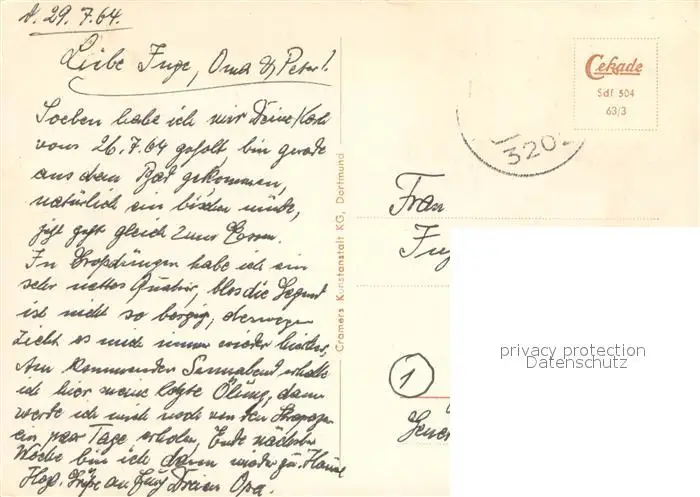 d. 29.7.64.
Liebe Inge, Oma & Peter!
Soeben habe ich mir Deine Karte
vom 26.7.64 geholt, bin gerade
aus dem Bad gekommen,
natürlich ein bischen müde,
jetzt geht gleich zum Essen.
In habe ich ein
sehr nettes Quatier, blos die Gegend
ist nicht so bergig, deswegen
zieht es mich immer wieder hierher,
Am kommenden Sonnabend erhalte
ich hier meine letzte Ölung, dann
werde ich mich noch von den Strapazen
ein paar Tage erholen, Ende nächster
Woche bin ich dann wieder zu Hause
Hzl. Grüße an Euch Deinen Opa.
Cramers Kunstanstalt KG, Dortmund
Cekade
Sdf 504
63/3
320
Frau
1
privacy protection
Datenschutz